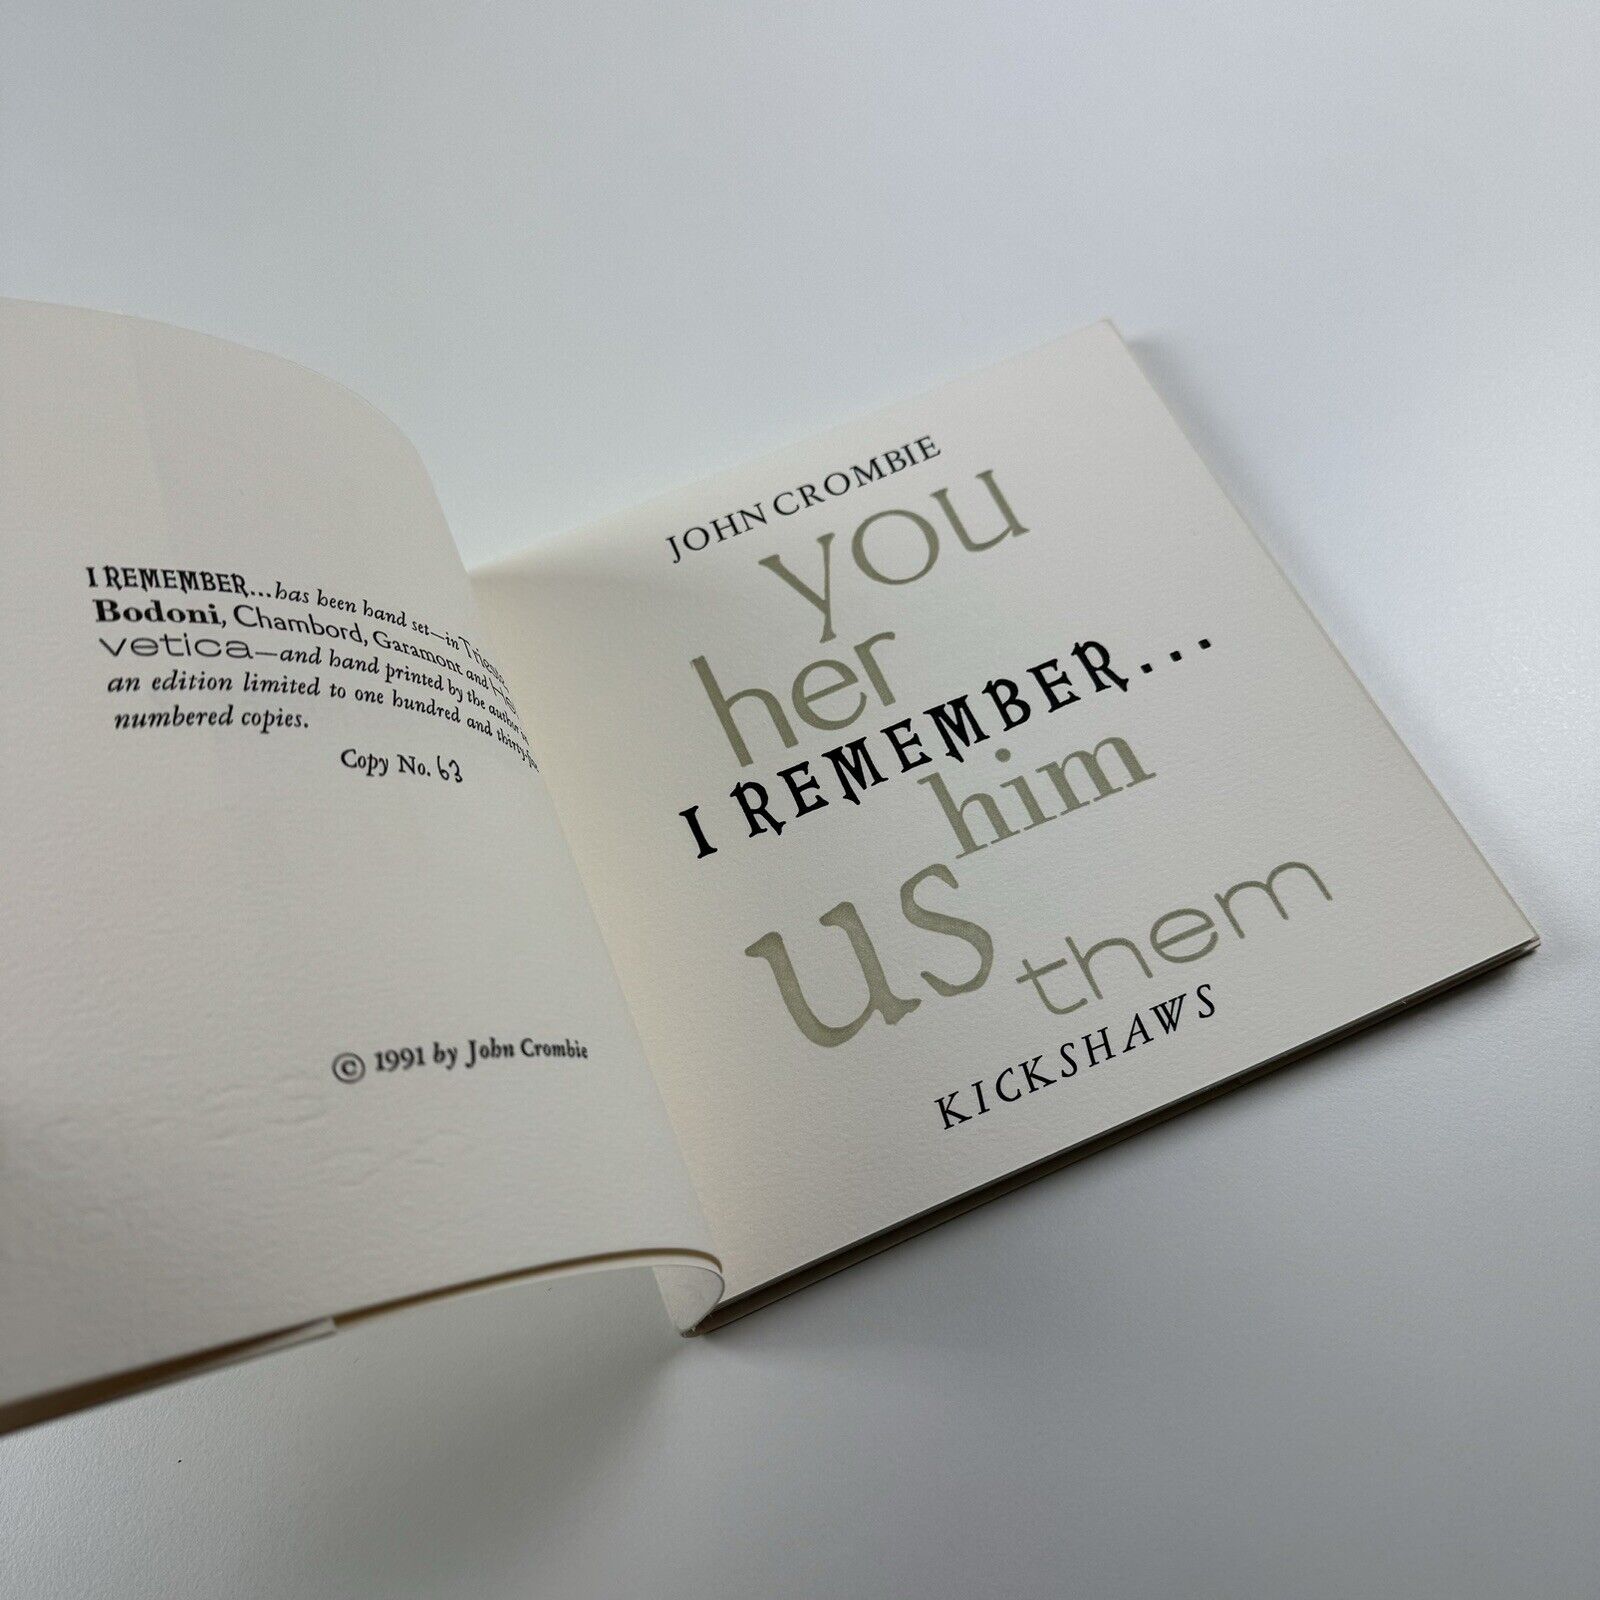 I REMEMBER...has been hand set—in
Bodoni, Chambord, Garamont and
vetica—and hand printed by the author
an edition limited to one hundred and
numbered copies.
Copy No. 63
© 1991 by John Crombie
JOHN CROMBIE
you
her
I REMEMBER...
him
us
them
KICKSHAWS